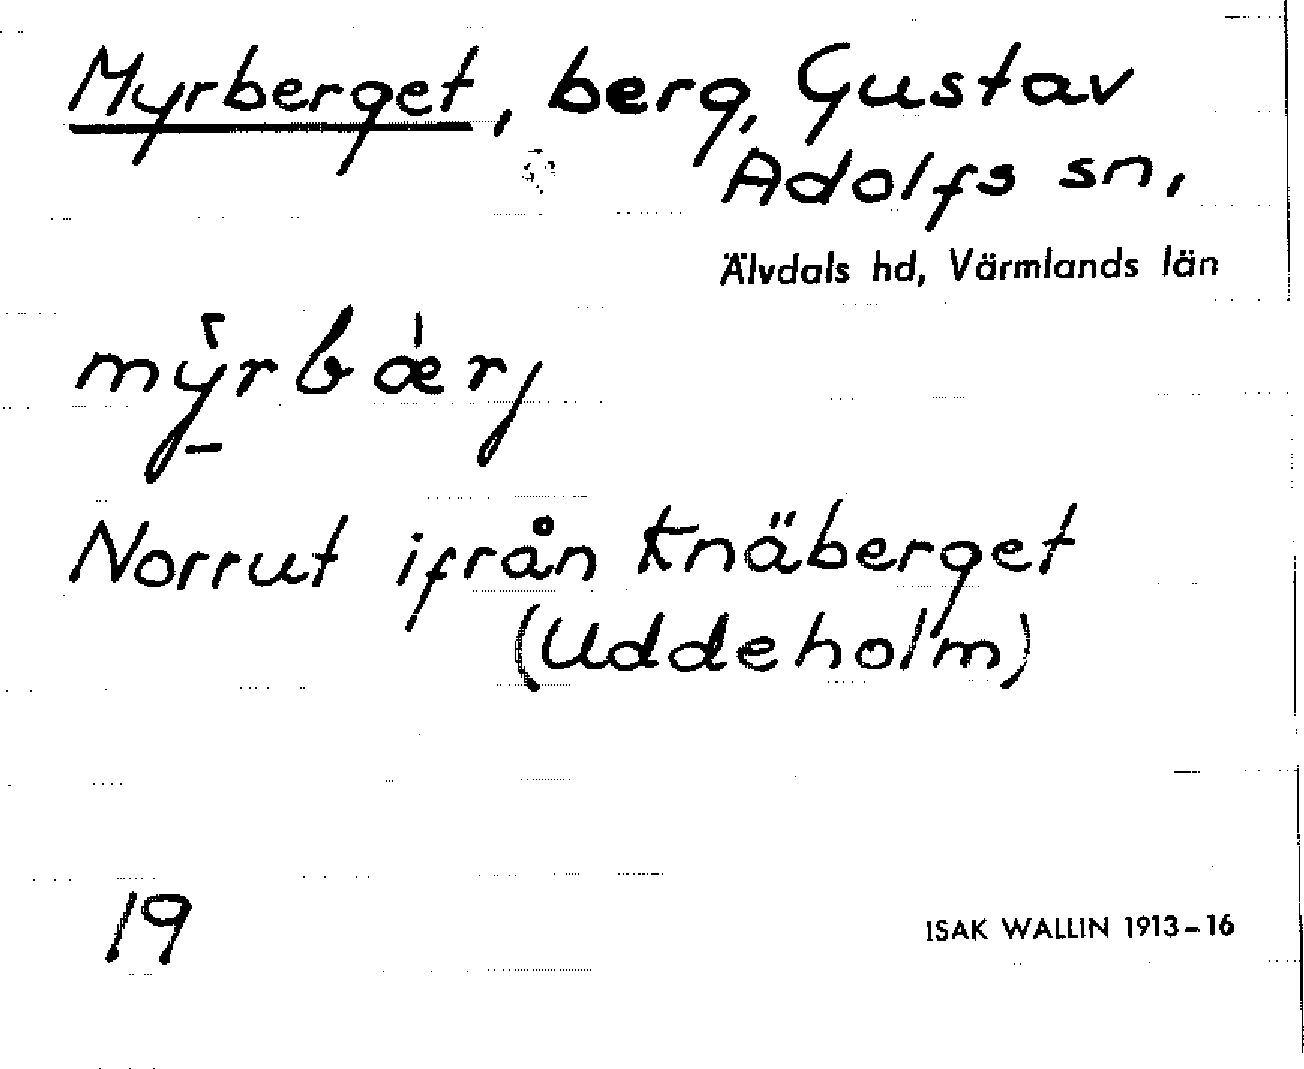 Myrberget, berg, Gustav
Adolfs sn,
Älvdals hd, Värmlands län
mỳ̱rbǽrj
Norrut ifrån Knäberget
(Uddeholm)
19
ISAK WALLIN 1913-16